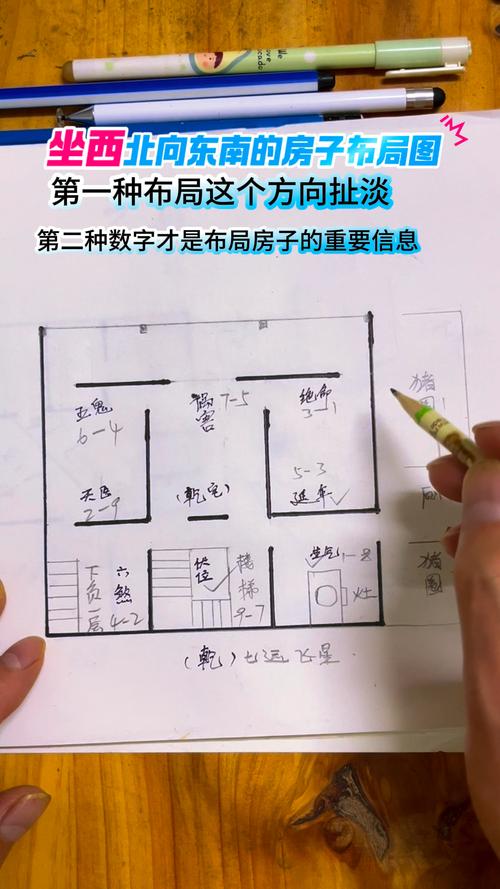 坐西北向东南的房子布局图
第一种布局这个方向扯淡
第二种数字才是布局房子的重要信息
五鬼
6-4
祸害
7-5
绝命
3-1
猪圈
天医
2-9
(乾宅)
5-3
延年
厕
下负一层
六煞
4-2
伏位
楼梯
9-7
生气
1-8
灶
猪圈
(乾)七运飞星